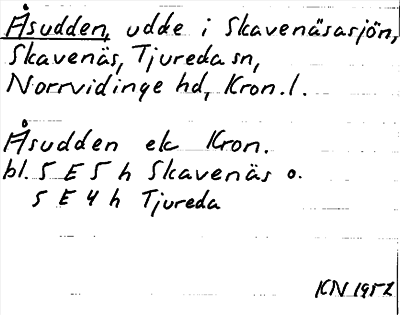 Åsudden, udde i Skavenäsasjön,
Skavenäs, Tjureda sn,
Norrvidinge hd, Kron. l.
Åsudden ek Kron.
bl. 5 E 5 h Skavenäs o.
5 E 4 h Tjureda
KN 1952